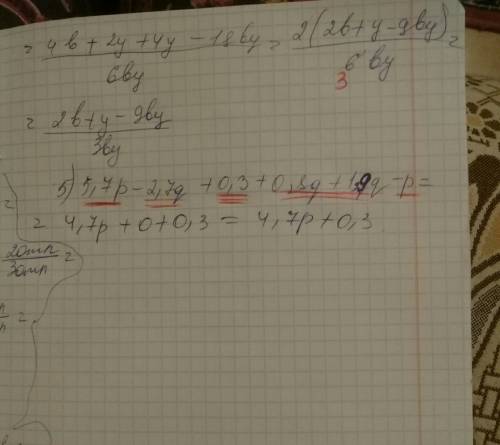 = 4b + 2y + 4y - 18by / 6by = 2(2b + y - 9by) / 6 by =
3
= 2b + y - 9by / 3by
5) 5,7p - 2,7q + 0,3 + 0,8q + 1,9q - p =
= 4,7p + 0 + 0,3 = 4,7p + 0,3
20mn / 30mn =